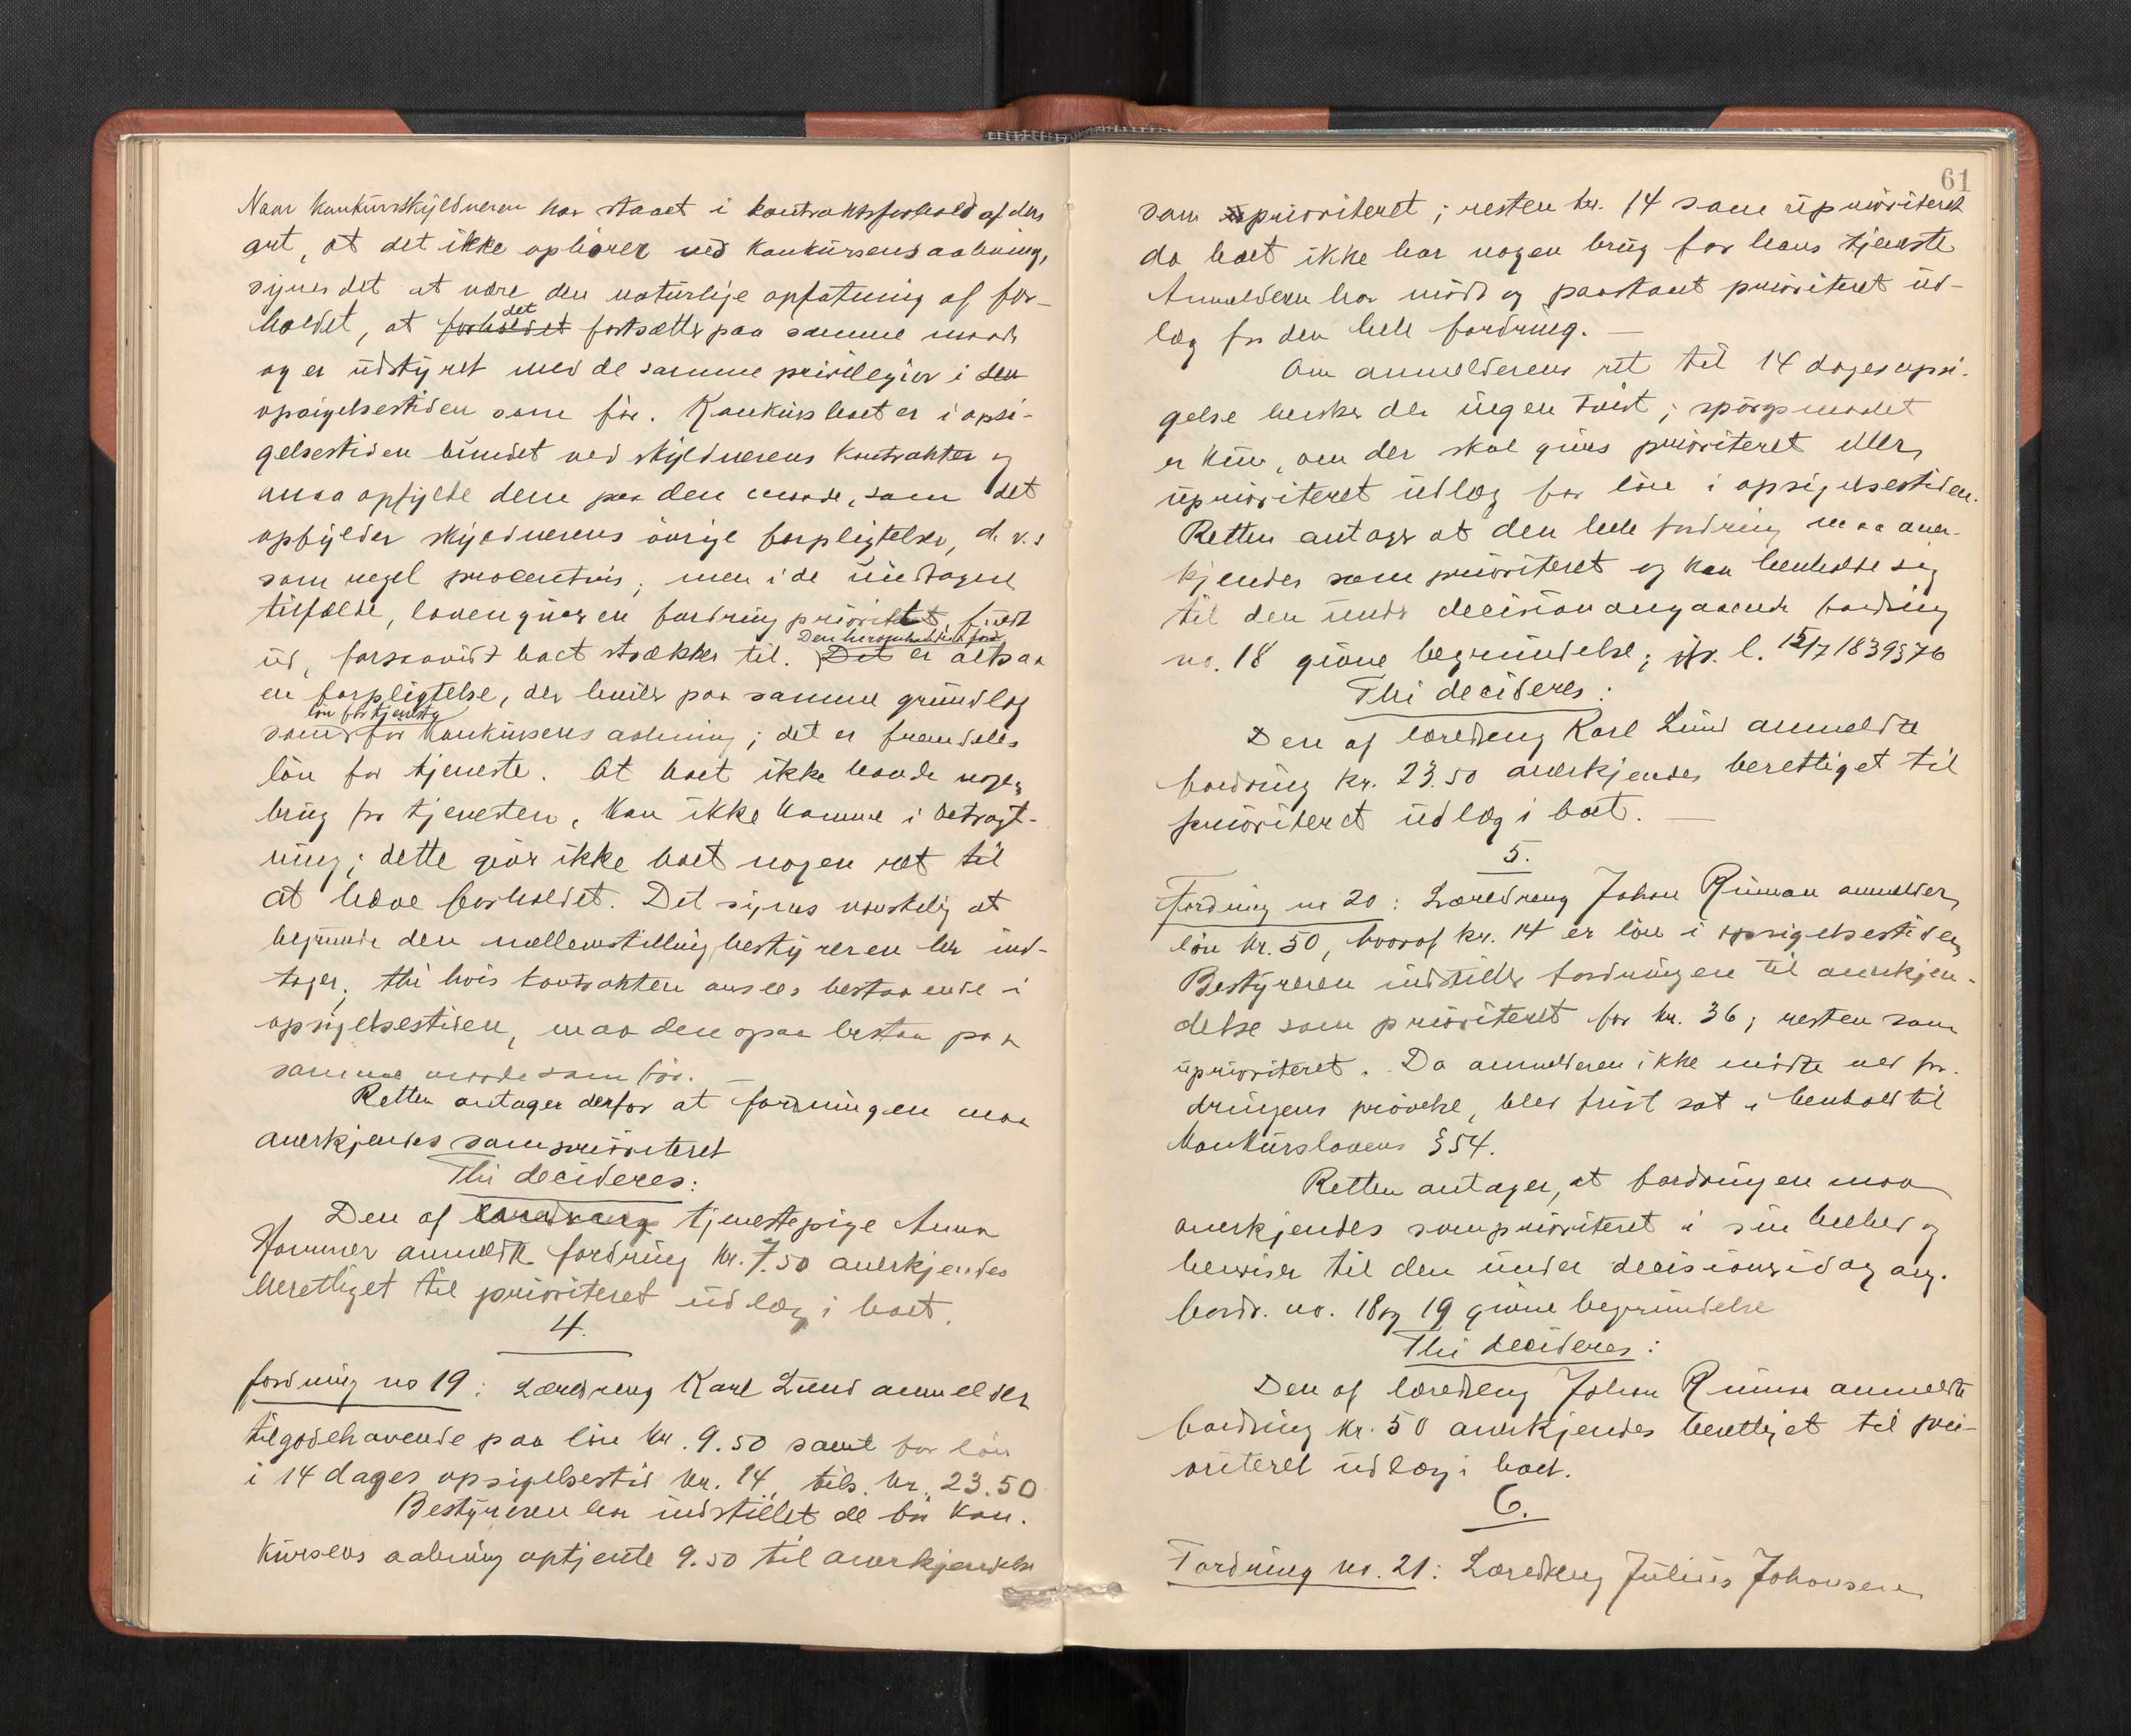 Naar konkursskyldneren har staaet i kontraktsforhold af den
art, at det ikke ophører ved konkursens aabning,
synes det at være den naturlige opfatning af for-
holdet, at forholdet det fortsættes paa samme maade
og er udstyret med de samme privilegier i den
opsigelsestiden som før. Konkursboet er i opsi-
gelsestiden bundet ved skyldnerens kontrakter og
maa opfylde dem paa den maade, som det
opfylder skyldnerens øvrige forpligtelser, d. v. s
som regel procentvis; men i de undtagne
tilfælde, loven gjør en fordring prioritet, fuldt
ud, forsaavidt boet strækker til. Det er altsaa
en forpligtelse, der hviler paa samme grundlag
som løn for tjeneste før konkursens aabning; det er fremdeles
løn for tjeneste. At boet ikke havde nogen
brug for tjenesten, kan ikke komme i betragt-
ning; dette gjør ikke boet nogen ret til
at hæve forholdet. Det synes vanskelig at
begrunde den mellemstilling bestyreren her ind-
tager; thi hvis kontrakten ansees bestaaende i
opsigelsestiden, maa den ogsaa bestaa paa
samme maade som før. —
Retten antager derfor at fordringen maa
anerkjendes som prioriteret
Thi decideres:
Den af læredreng tjenestepige Anna
Hammer anmeldte fordring kr. 7.50 anerkjendes
berettiget til prioriteret udlæg i boet.
4.
Fordring no 19: Læredreng Karl Lund anmelder
tilgodehavende paa løn kr. 9.50 samt for løn
i 14 dages opsigelsestid kr. 14, tils. kr. 23.50
Bestyreren har indstillet de før kon-
kursens aabning optjente 9.50 til anerkjendelse
61
som uprioriteret; resten kr. 14 som uprioriteret
da boet ikke har nogen brug for hans tjeneste
Anmelderen har mødt og paastaaet prioriteret ud-
læg for den hele fordring. —
Om anmelderens ret til 14 dages opsi-
gelse hersker der ingen tvist; spørgsmaalet
er kun, om der skal gives prioriteret eller
uprioriteret udlæg for løn i opsigelsestiden.
Retten antager at den hele fordring maa aner-
kjendes som prioriteret og kan henholde sig
til den under decision angaaende fordring
no. 18 givne begrundelse; jfr. l. 15/7 1839 § 76
Thi decideres:
Den af læredreng Karl Lund anmeldte
fordring kr. 23.50 anerkjendes berettiget til
prioriteret udlæg i boet. —
5.
Fordring no 20: Læredreng Johan Ruman anmelder
løn kr. 50, hvoraf kr. 14 er løn i opsigelsestiden
Bestyreren indstiller fordringen til anerkjen-
delse som prioriteret for kr. 36; resten som
uprioriteret. Da anmelderen ikke mødte ved for-
dringens prøvelse, blev frist sat i henhold til
Konkurslovens § 54.
Retten antager, at fordringen maa
anerkjendes som prioriteret i sin helhed og
henviser til den under decision idag ang.
fordr. no. 18 og 19 givne begrundelse
Thi decideres:
Den af læredreng Johan Ruman anmeldte
fordring kr. 50 anerkjendes berettiget til pri-
oriteret udlæg i boet.
6.
Fordring no. 21: Læredreng Julius Johansen